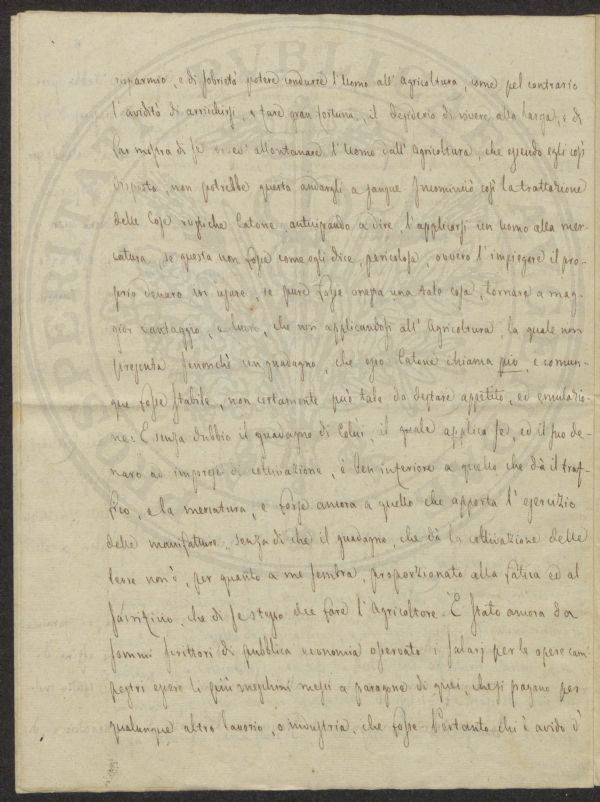 risparmio, e di sobrietà potere condurre l'Uomo all'Agricoltura, come pel contrario
l'avidità di arricchirsi, e fare gran fortuna, il desiderio di vivere alla larga, e di
far mostra di se allontanare l'Uomo dall'Agricoltura, che essendo egli così
disposto non potrebbe questa andargli a sangue. Incominciò così la trattazione
delle Cose rustiche Catone anticipando a dire, l'applicarsi un uomo alla mer-
catura, se questa non fosse come egli dice, pericolosa, ovvero l'impiegare il pro-
prio denaro in usure, se pure fosse onesta una tale cosa, tornare a mag-
gior vantaggio, e lucro, che non applicandosi all'Agricoltura, la quale non
presenta sennonchè un guadagno, che esso Catone chiama pio, e comun-
que fosse stabile, non certamente può tale da destare appetito, ed emulazio-
ne: E senza dubbio il guadagno di Colui, il quale applica se, ed il suo de-
naro ad imprese di coltivazione, è ben inferiore a quello che dà il traf-
fico, e la mercatura, e forse ancora a quello che apporta l'esercizio
delle manifatture, senza di che il guadagno, che dà la coltivazione delle
terre non è, per quanto a me sembra, proporzionato alla fatica ed al
sacrifizio, che di se stesso dee fare l'Agricoltore. È stato ancora da
sommi scrittori di pubblica economia osservato i salarj per le opere cam-
pestri essere li più meschini messi a paragone di quei, che si pagano per
qualunque altro lavorio, o industria, che fosse. Pertanto chi è avido d'
PROSPERITATI PUBLICAE